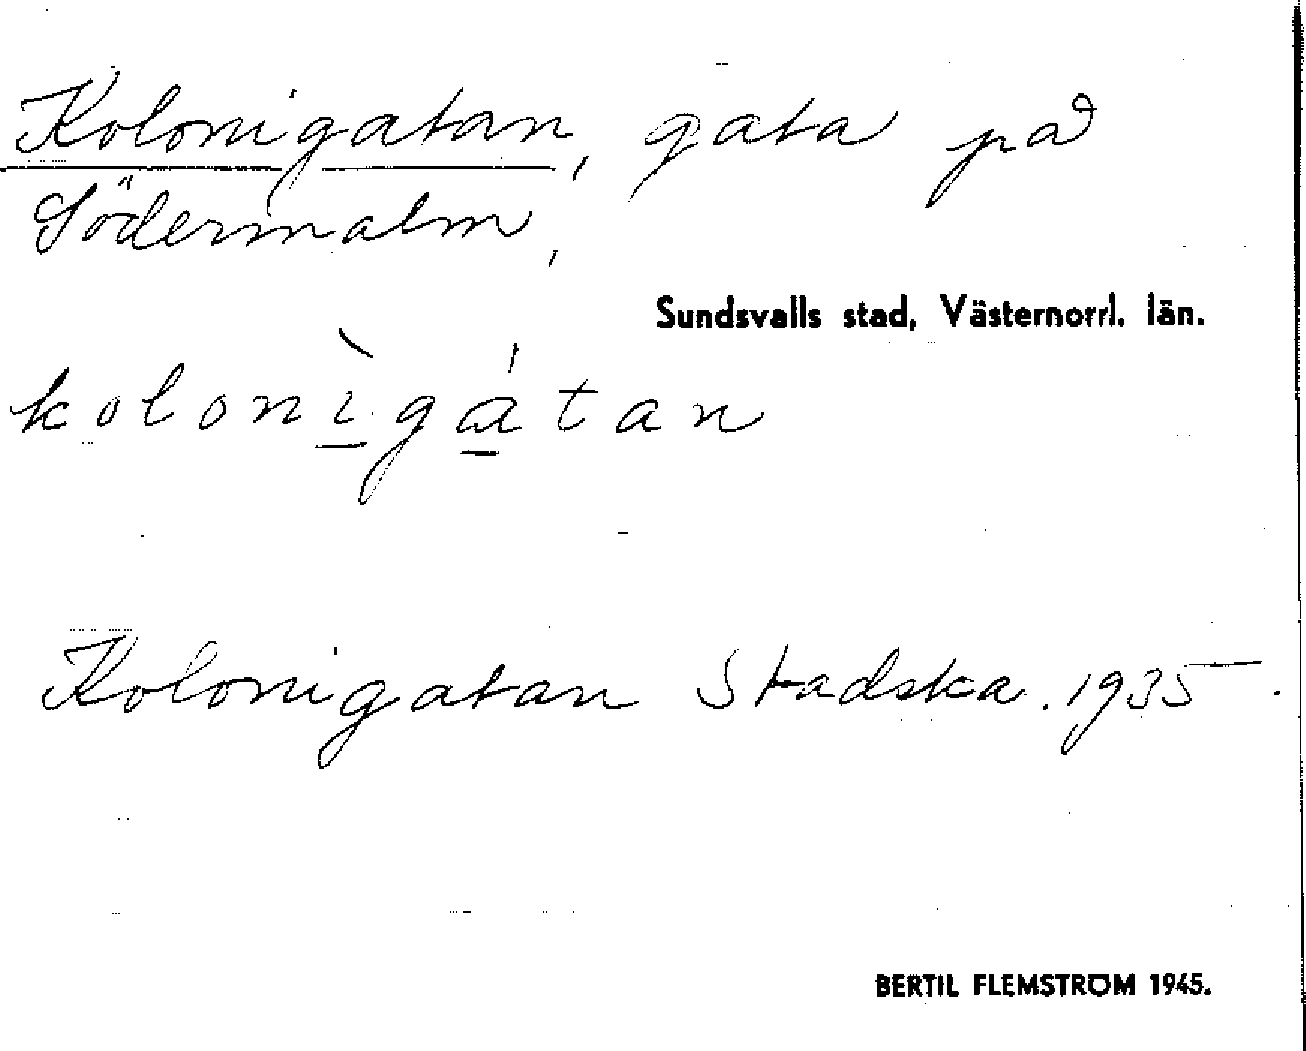 Kolonigatan, gata på
Södermalm,
Sundsvalls stad, Västernorrl. län.
kolonìgátan
Kolonigatan Stadska. 1935.
BERTIL FLEMSTRÖM 1945.